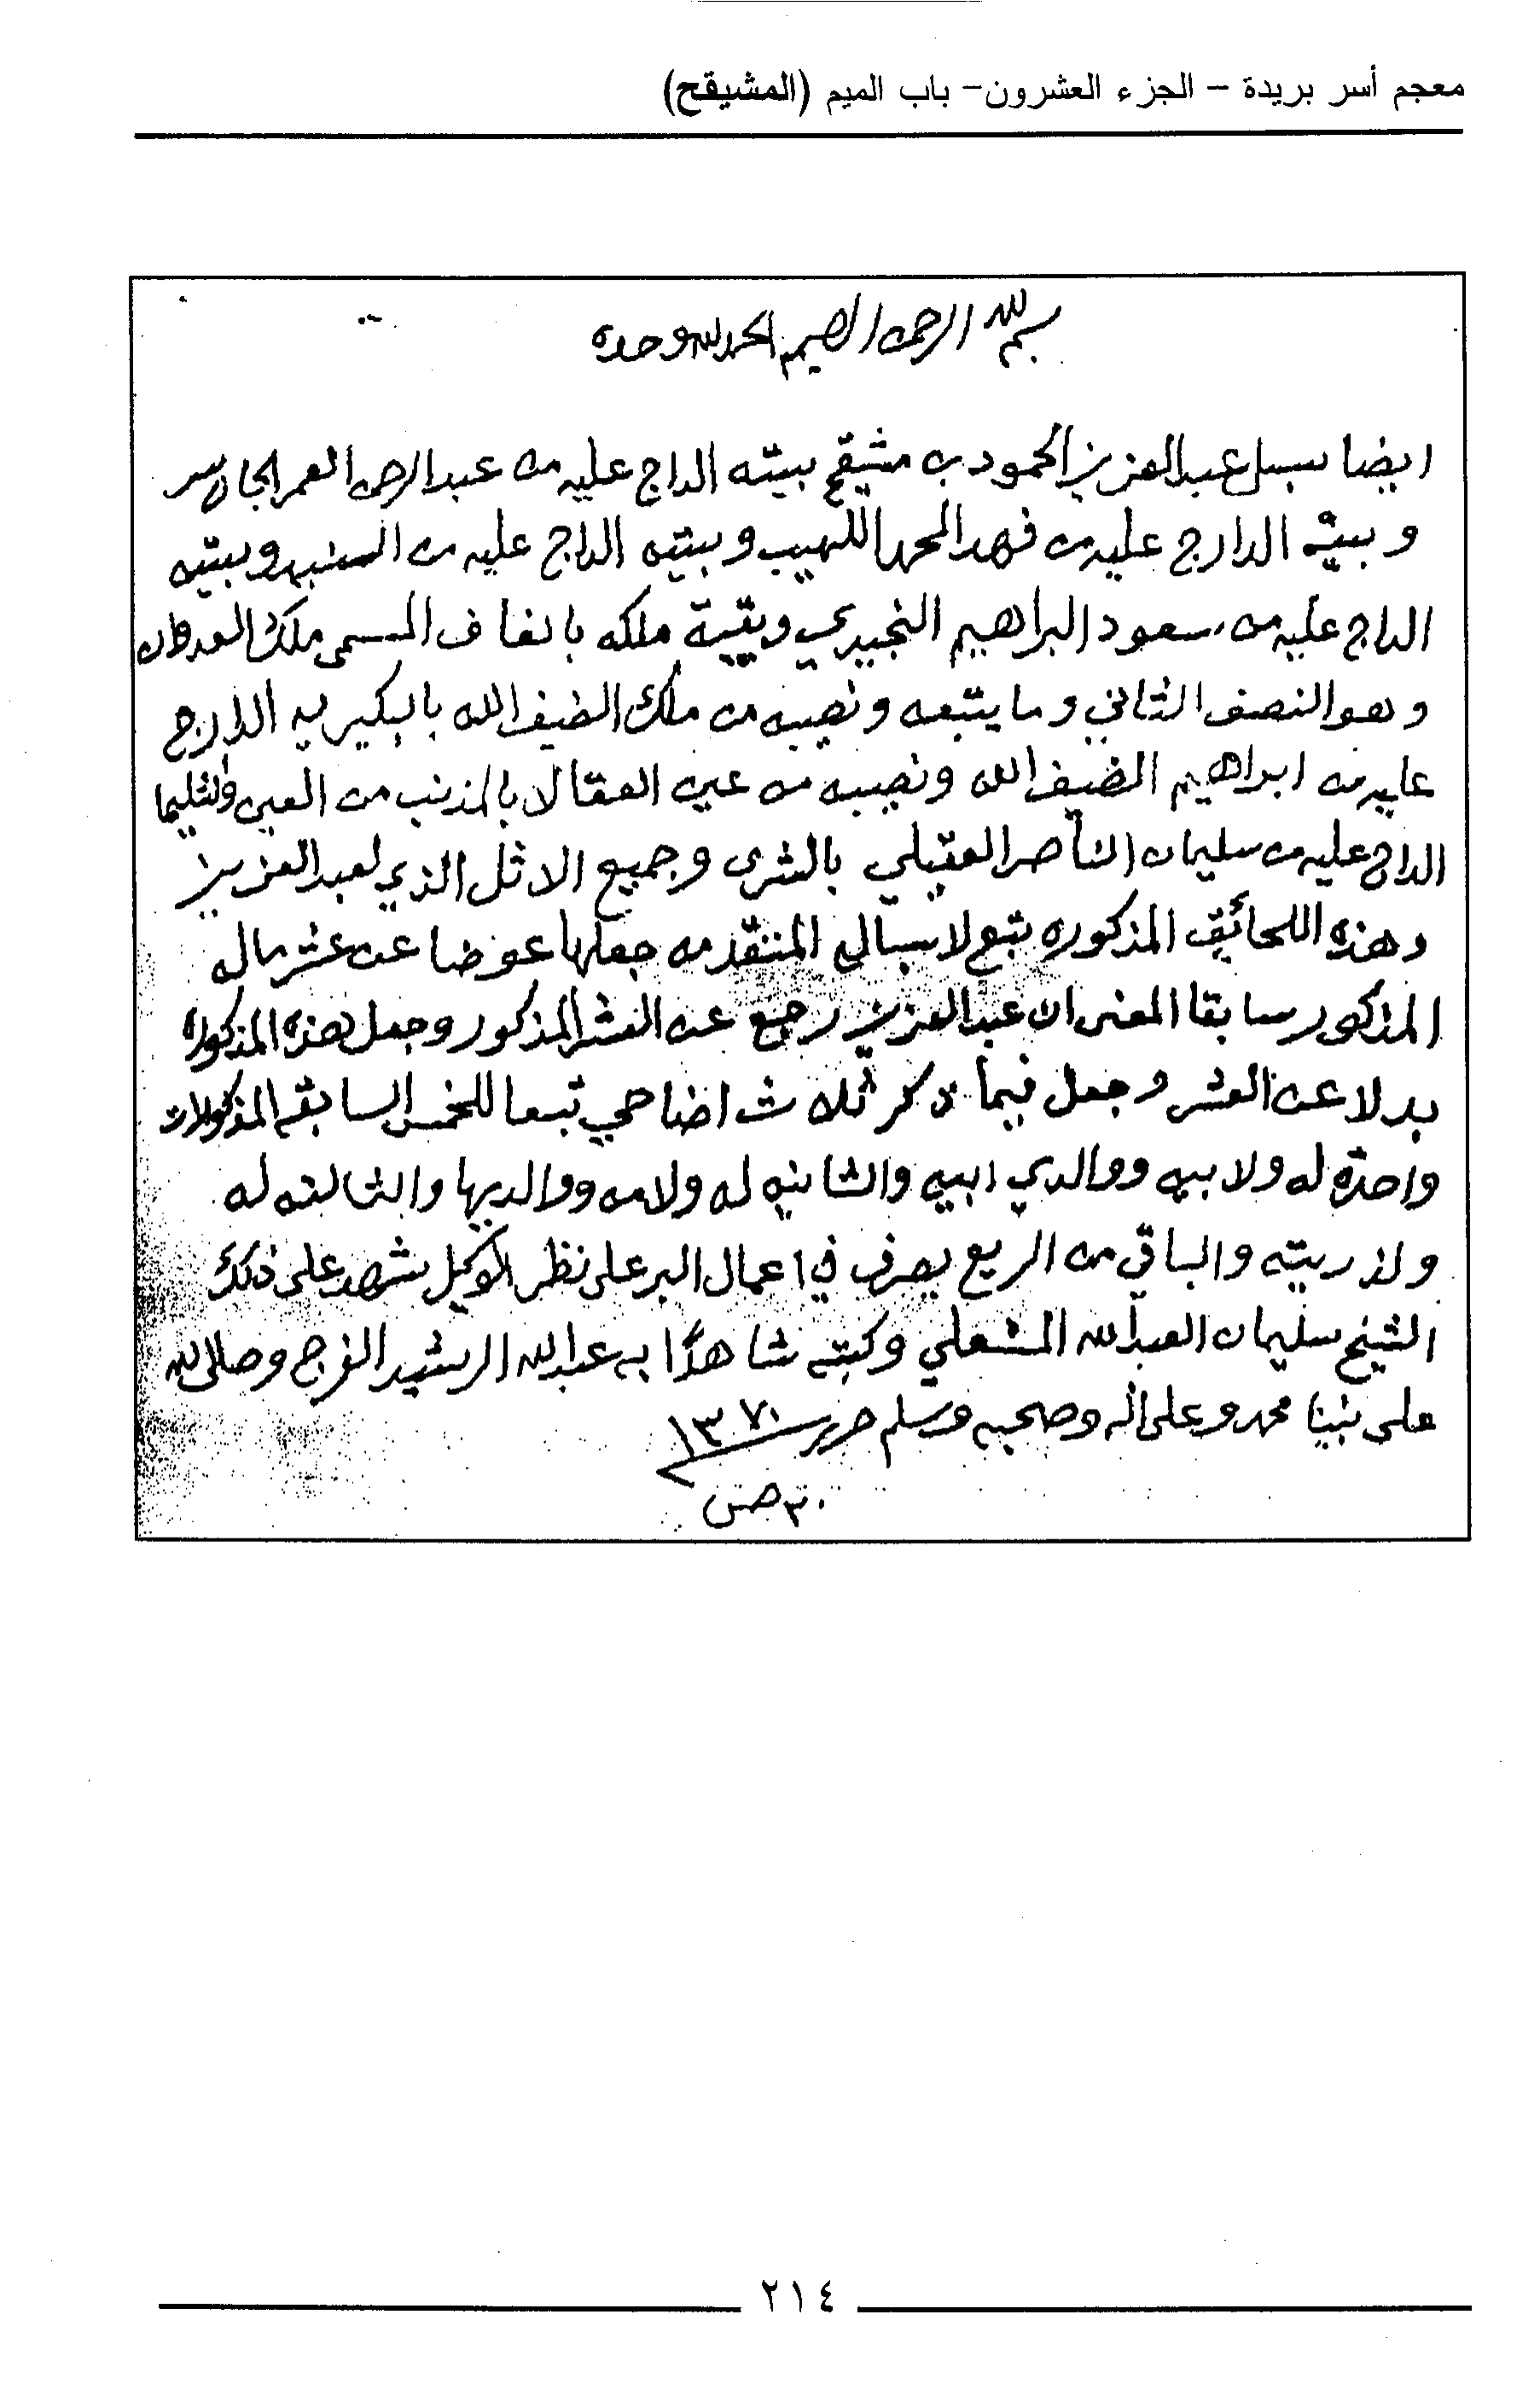 معجم أسر بريدة – الجزء العشرون– باب الميم (المشيقح)
بسم الله الرحمن الرحيم الحمد لله وحده
ايضا سبل عبدالعزيز الحمود بن مشيقح بيته الداج عليه من عبدالرحمن العمر الجاسر
وبيته الدارج عليه من فهد المحمد اللهيب وبيته الداج عليه من وبيته
الداج عليه من سعود البراهيم النجيدي وبقية ملكه بالغاف المسمى ملك
وهو النصف الثاني وما يتبعه ونصيبه من ملك الضيف الله بالبكيريه الدارج
عليه من ابراهيم الضيف الله ونصيبه من عين العقالا بالمذنب من العين
الداج عليه من سليمان الناصر العقيلي بالشرى وجميع الاثل الذي لعبدالعزيز
وهذه اللحائق المذكوره تبع لاسبالي المتقدمه جعلها عوضا عن عشر ماله
المذكور سابقا المعنى ان عبدالعزيز رجع عن العشر المذكور وجعل هذه المذكوره
بدلا عن العشر وجعل فيما ذكر ثلاث اضاحي تبعا للخمس السابقه المذكورات
واحدة له ولابيه ووالدي ابيه والثانيه له ولامه ووالديها والثالثه له
ولذريته والباقي من الريع يصرف في اعمال البر على نظر الوكيل شهد على ذلك
الشيخ سليمان العبدالله المشعلي وكتبه شاهدًا به عبدالله الرشيد الفرج وصلى الله
على نبينا محمد وعلى اله وصحبه وسلم حرر ١٣٧٠
٣٠ ص
٢١٤